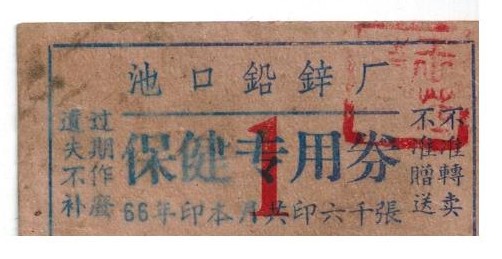 池口鉛鋅厂
保健专用券
1
66年印本月共印六千張
过期作廢
遺失不补
不准轉卖
不准贈送